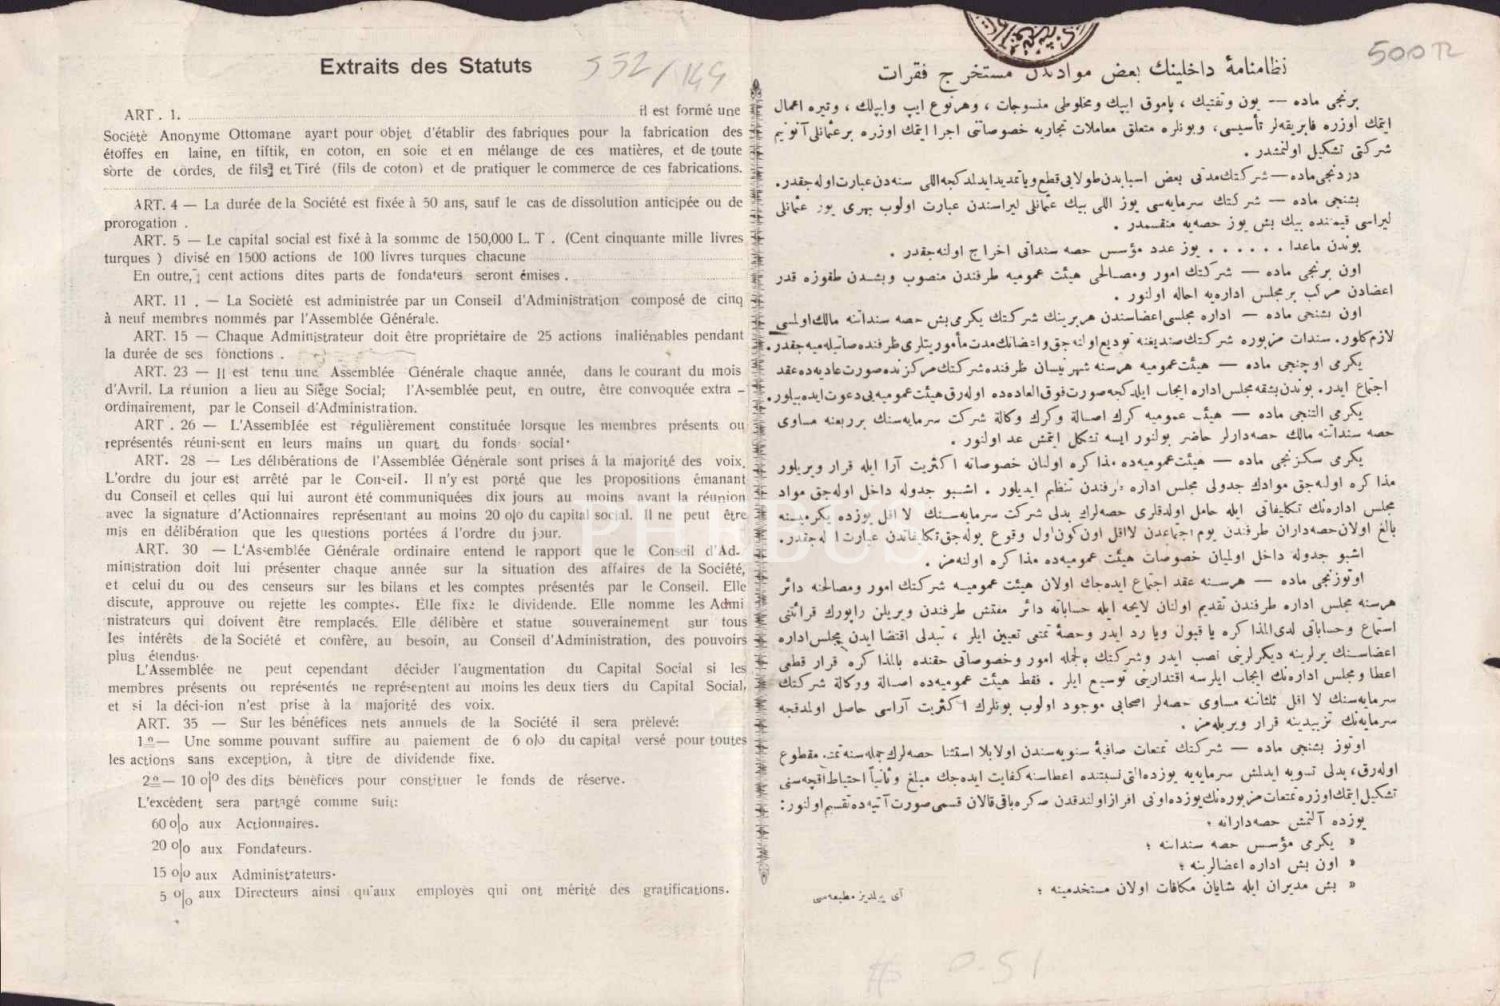 Extraits des Statuts
532/149
ART . 1. il est formé une
Société Anonyme Ottomane ayart pour objet d'établir des fabriques pour la fabrication des
étoffes en laine, en tiftik, en coton, en soie et en mélange de ces matières, et de toute
sorte de cordes, de fils et Tiré (fils de coton) et de pratiquer le commerce de ces fabrications.
ART. 4 — La durée de la Société est fixée à 50 ans, sauf le cas de dissolution anticipée ou de
prorogation .
ART. 5 — Le capital social est fixé à la somme de 150,000 L. T . (Cent cinquante mille livres
turques ) divisé en 1500 actions de 100 livres turques chacune
En outre, cent actions dites parts de fondateurs seront émises .
ART. 11 . — La Société est administrée par un Conseil d'Administration composé de cinq
à neuf membres nommés par l'Assemblée Générale.
ART. 15 — Chaque Administrateur doit être propriétaire de 25 actions inaliénables pendant
la durée de ses fonctions .
ART. 23 — Il est tenu une Assemblée Générale chaque année, dans le courant du mois
d'Avril. La réunion a lieu au Siège Social; l'Assemblée peut, en outre, être convoquée extra –
ordinairement, par le Conseil d'Administration.
ART . 26 — L'Assemblée est régulièrement constituée lorsque les membres présents ou
représentés réuni-sent en leurs mains un quart du fonds social·
ART. 28 — Les délibérations de l'Assemblée Générale sont prises à la majorité des voix.
L'ordre du jour est arrêté par le Conseil. Il n'y est porté que les propositions émanant
du Conseil et celles qui lui auront été communiquées dix jours au moins avant la réunion
avec la signature d'Actionnaires représentant au moins 20 o|o du capital social. Il ne peut être
mis en délibération que les questions portées á l'ordre du jour.
ART. 30 — L'Assemblée Générale ordinaire entend le rapport que le Conseil d'Ad-
ministration doit lui présenter chaque année sur la situation des affaires de la Société,
et celui du ou des censeurs sur les bilans et les comptes présentés par le Conseil. Elle
discute, approuve ou rejette les comptes. Elle fixe le dividende. Elle nomme les Admi
nistrateurs qui doivent être remplacés. Elle délibère et statue souverainement sur tous
les intérêts de la Société et confère, au besoin, au Conseil d'Administration, des pouvoirs
plus étendus·
L'Assemblée ne peut cependant décider l'augmentation du Capital Social si les
membres présents ou représentés ne représentent au moins les deux tiers du Capital Social,
et si la déci-ion n'est prise à la majorité des voix.
ART. 35 — Sur les bénéfices nets annuels de la Société il sera prélevé:
1º— Une somme pouvant suffire au paiement de 6 o|o du capital versé pour toutes
les actions sans exception, à titre de dividende fixe.
2º— 10 o|o des dits bénéfices pour constituer le fonds de réserve.
L'excédent sera partagé comme suit:
60 o|o aux Actionnaires.
20 o|o aux Fondateurs.
15 o|o aux Administrateurs·
5 o|o aux Directeurs ainsi qu'aux employés qui ont mérité des gratifications.
500 TL
نظامنامهٔ داخلینك بعض موادندن مستخرج فقرات
برنجی ماده — یون وتفتیك ، پاموق ایپك ومخلوطی منسوجات ، وهرنوع ایپ وایپلك ، وتیره اعمال
ایتمك اوزره فابریقه‌لر تأسیسی، وبونلره متعلق معاملات تجاریه خصوصاتنی اجرا ایتمك اوزره بر عثمانلی آنونیم
شرکتی تشکیل اولنمشدر .
دردنجی ماده — شرکتك مدتی بعض اسبابدن طولایی قطع ویا تمدید ایدلدکجه اللی سنه‌دن عبارت اوله جقدر.
بشنجی ماده — شرکتك سرمایه‌سی یوز اللی بیك عثمانلی لیراسندن عبارت اولوب بهری یوز عثمانلی
لیراسی قیمتنده بیك بش یوز حصه‌یه منقسمدر .
بوندن ماعدا . . . . . . یوز عدد مؤسس حصه سنداتی اخراج اولنه جقدر .
اون برنجی ماده — شرکتك امور ومصالحی هیئت عمومیه طرفندن منصوب وبشدن طقوزه قدر
اعضادن مرکب بر مجلس اداره‌یه احاله اولنور .
اون بشنجی ماده — اداره مجلسی اعضاسندن هربرینك شرکتك یکرمی بش حصه سنداتنه مالك اولمسی
لازم کلور. سندات مزبوره شرکتك صندیغنه تودیع اولنه جق واعضانك مدت مأموریتلری ظرفنده صاتیله میه جقدر.
یکرمی اوچنجی ماده — هیئت عمومیه هرسنه شهر نیسان ظرفنده شرکتك مرکزنده صورت عادیه‌ده عقد
اجتماع ایدر. بوندن بشقه مجلس اداره ایجاب ایلدکجه صورت فوق العاده‌ده اوله‌رق هیئت عمومیه‌یی دعوت ایده بیلور.
یکرمی التنجی ماده — هیئت عمومیه کرك اصالة وکرك وکالة شرکت سرمایه‌سنك ربعنه مساوی
حصه سنداتنه مالك حصه‌دارلر حاضر بولنور ایسه تشکل ایتمش عد اولنور .
یکرمی سکزنجی ماده — هیئت عمومیه‌ده مذاکره اولنان خصوصاته اکثریت آرا ایله قرار ویریلور
مذاکره اوله جق موادك جدولی مجلس اداره طرفندن تنظیم ایدیلور . اشبو جدوله داخل اوله جق مواد
مجلس اداره‌نك تکلیفاتی ایله حامل اولدقلری حصه‌لرك بدلی شرکت سرمایه‌سنك لااقل یوزده یکرمیسنه
بالغ اولان حصه‌داران طرفندن یوم اجتماعدن لااقل اون کون اول وقوع بوله جق تکلیفاتدن عبارت اوله جقدر.
اشبو جدوله داخل اولمیان خصوصات هیئت عمومیه‌ده مذاکره اولنه‌مز .
اوتوزنجی ماده — هرسنه عقد اجتماع ایده‌جك اولان هیئت عمومیه شرکتك امور ومصالحنه دائر
هرسنه مجلس اداره طرفندن تقدیم اولنان لایحه ایله حساباته دائر مفتش طرفندن ویریلن راپورك قرائتنی
استماع وحساباتی لدی المذاکره یا قبول ویا رد ایدر وحصهٔ تمتعی تعیین ایلر ، تبدلی اقتضا ایدن مجلس اداره
اعضاسنك یرلرینه دیکرلرینی نصب ایدر وشرکتك بالجمله امور وخصوصاتی حقنده بالمذاکره قرار قطعی
اعطا ومجلس اداره‌نك ایجاب ایلرسه اقتدارینی توسیع ایلر . فقط هیئت عمومیه‌ده اصالة ووکالة شرکتك
سرمایه‌سنك لا اقل ثلثاننه مساوی حصه‌لر اصحابی موجود اولوب بونلرك اکثریت آراسی حاصل اولمدقجه
سرمایه‌نك تزییدینه قرار ویریله‌مز .
اوتوز بشنجی ماده — شرکتك تمتعات صافیهٔ سنویه‌سندن اولا بلا استثنا حصه‌لرك جمله‌سنه تمتع مقطوع
اوله‌رق، بدلی تسویه ایدلمش سرمایه‌یه یوزده التی نسبتنده اعطاسنه کفایت ایده‌جك مبلغ وثانیاً احتیاط اقچه‌سنی
تشکیل ایتمك اوزره تمتعات مزبوره‌نك یوزده اونی افراز اولندقدن صکره باقی قالان قسمی صورت آتیه‌ده تقسیم اولنور:
یوزده آلتمش حصه‌دارانه ؛
« یکرمی مؤسس حصه سنداتنه ؛
« اون بش اداره اعضالرینه ؛
« بش مدیران ایله شایان مکافات اولان مستخدمینه ؛
آی ییلدیز مطبعه‌سی
PHEBUS
0-51